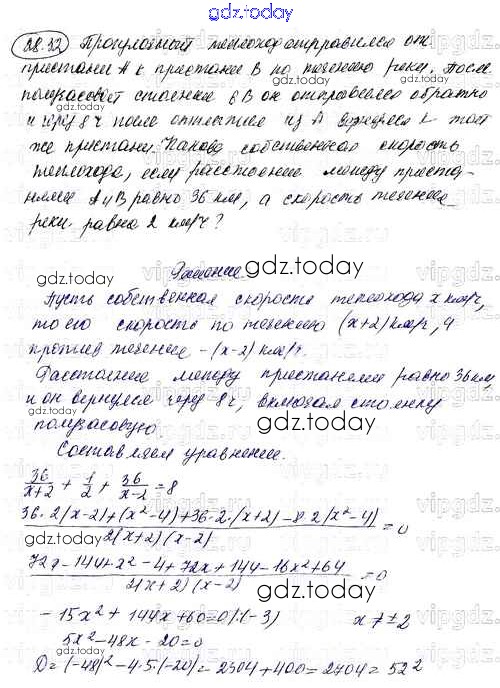 gdz.today
28.32 Прогулочный теплоход отправился от
пристани А к пристани В по течению реки. После
получасовой стоянки в В он отправился обратно
и через 8 ч после отплытия из А вернулся к той
же пристани. Какова собственная скорость
теплохода, если расстояние между приста-
нями А и В равно 36 км, а скорость течения
реки равна 2 км/ч?
Решение
Пусть собственная скорость теплохода x км/ч,
то его скорость по течению (x+2) км/ч, а
против течения – (x-2) км/ч.
Расстояние между пристанями равно 36 км
и он вернулся через 8 ч, включая стоянку
получасовую.
Составляем уравнение.
36/(x+2) + 1/2 + 36/(x-2) = 8
(36·2(x-2)+(x²-4)+36·2·(x+2)-8·2(x²-4))/(2(x+2)(x-2)) = 0
(72x-144+x²-4+72x+144-16x²+64)/(2(x+2)(x-2)) = 0
-15x²+144x+60=0 |:(-3) x≠±2
5x²-48x-20=0
D=(-48)²-4·5·(-20)=2304+400=2704=52²